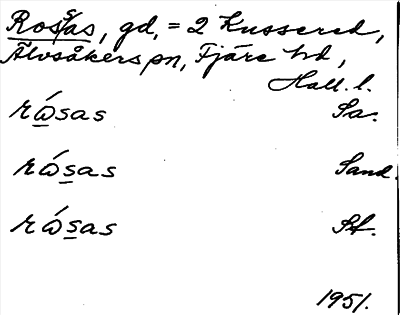 Rossas, gd, = 2 Kussered,
Älvsåkers sn, Fjäre hd,
Hall. l.
rɷ́sas Sa.
rɷ́sas Sand.
rɷ́sas St.
1951.